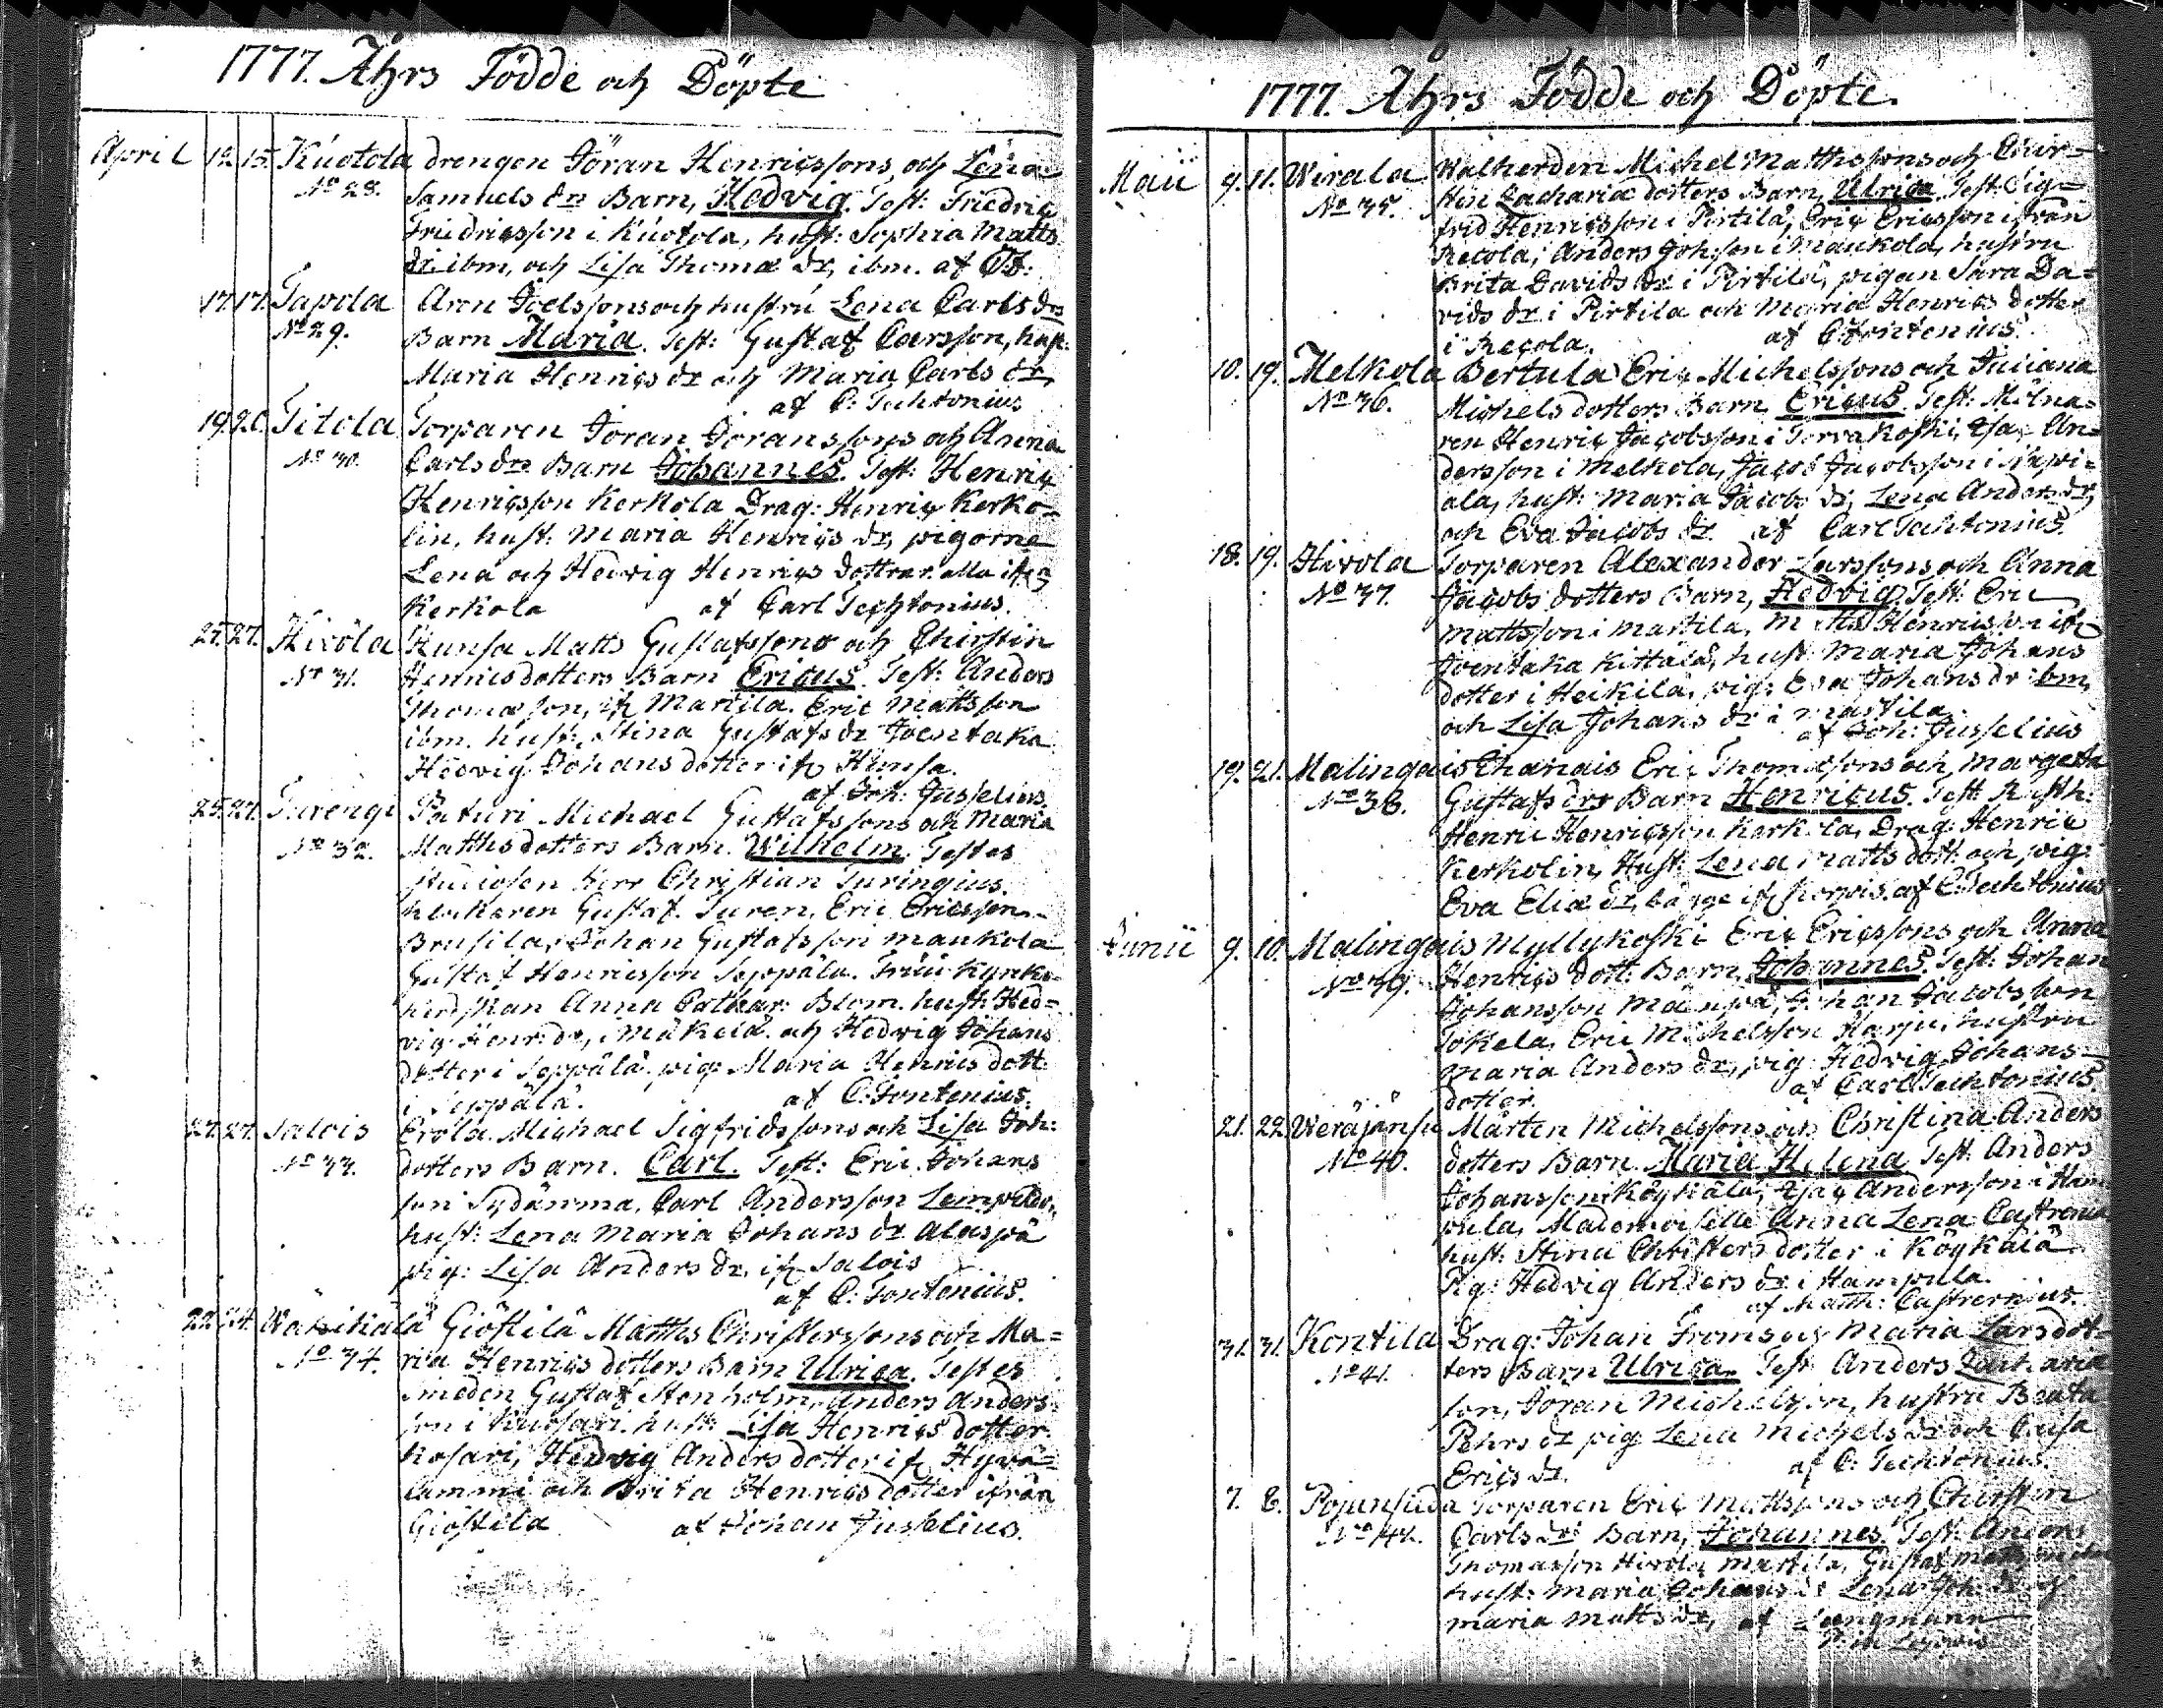 1777. Åhrs Födde och Döpte
April 12. 15. Kuotola drengen Jöran Henricssons, och Lena
No 28. Samuels drs Barn, Hedvig. Test: Friedric
Friedricsson i Kuotola, hust: Sophia Matts
dr. ibm, och Lisa Thomæ dr, ibm. af
17. 17. Tapola Aron Joelssons och hustru Lena Carls drs
No 29. Barn Maria. Test: Gustaf Carsson, hust:
Maria Henrics dr och Maria Carls dr,
af C: Techtonius
19. 20. Titola Torparen Jöran Joranssons och Anna
No 30. Carls drs Barn Johannes. Test: Henric
Henricsson Kerkola Drag: Henric Kerko-
lin, hust: Maria Henrics dr, pigorne
Lena och Hedvig Henrics dottrar. alla ifr
Kerkola af Carl Techtonius.
25. 27. Hirola Hunsa Matts Gustafssons och Chirstin
No 31. Henricsdotters Barn Ericus. Test: Anders
Thomæson, if Martila. Eric Mattsson
ibm. hust: Stina Gustafs dr Joentaka
Hedvig Johans dotter if Hunsa.
af Joh: Jusselius.
25. 27. Turengi Paturi Michael Gustafssons och Maria
No 32. Matthsdotters Barn. Wilhelm. Testes
Studiosen Herr Christian Turingius.
klockaren Gustaf Turen, Eric Ericsson
Brusila, Johan Gustafsson Maukola
Gustaf Henricsson Seppälä. Fruu Kyrko-
herdskan Anna Cathar: Blom. hust: Hed-
vig Henr: dr, i Mäkelä. och Hedvig Johans
dotter i Seppälä. pig: Maria Henrics dott
i Seppälä. af C: Fontenius.
27. 27. Salois Erola. Michael Sigfridssons och Lisa Joh:
No 33. dotters Barn. Carl. Test: Eric Johans
son Sydänma, Carl Andersson
hust: Lena Maria Johans dr Alaspä
pig: Lisa Anders dr, if Salois
af C: Fontenius.
22. 24. Giöstilä Matths Christerssons och Ma-
No 34. ria Henrics dotters Barn Ulrica. Testes
smeden Gustaf Stenholm, Anders Anders
son i hust: Lisa Henrics dotter
Kosari, Hedvig Anders dotter if Hyvä-
lammi och Brita Henrics dotter ifrån
Giöstilä af Johan Jusselius.
1777. Åhrs Födde och Döpte.
Maii 9. 11. Wirala Walherden Michel Matthssons och Chir-
No 35. stin Zacharia dotters Barn, Ulrica. Test: Sig-
frid Henricsson i Pirtilä, Eric Ericsson ifrån
Recola, Anders Johsson i Maukola, hustru
Brita Davids dr i Pirtilä, pigan Sara Da-
vids dr i Pirtila och Maria Henrics dotter
i Recola. af C Fontenius.
10. 19. Melkola Bertula Eric Michelssons och Juliana
No 36. Michels dotters Barn Ericus. Test: Mölna-
ren Henric Jacobsson i Torvakoski, Isac An-
dersson i Melkola, Jacob Jacobsson i
ala, hust: Maria Jacobs dr, Lena Anders dr,
och Eva Jacobs dr. af Carl Techtonius.
18. 19. Hirola Torparen Alexander Larssons och Anna
No 37. Jacobs dotters Barn, Hedvig. Test: Eric
Mattsson i Martila, Matts Henricsson ifr
Joentaka Kittälä, hust: Maria Johans
dotter i Heikilä, pig: Eva Johans dr ibm,
och Lisa Johans dr i Martila.
af Joh: Jusselius
19. 21. Malingais Ehanais Eric Thomæsons och Margeta
No 38. Gustafs drs Barn Henricus. Test: Rusth:
Henric Henricsson Kerkola, Drag: Henric
Kerkolin, Hust: Lena Matts dott. och pig:
Eva Eliæ dr, if af C: Techtonius
Junii 9. 10. Malingais Myllykoski Eric Ericssons och Anna
No 39. Henrics dott: Barn, Johannes. Test: Johan
Johansson Johan Jacobsson
Tokela, Eric Michelsson Harju, hustru
Maria Anders dr, pig: Hedvig Johans-
dotter. af Carl Techtonius
21. 22. Weräjänsu Mårten Michelssons och Christina Anders
No 40. dotters Barn. Maria Helena. Test: Anders
Johansson i Köykälä, Isac Andersson i Ham
pula, Mademoiselle Anna Lena Castrenia
hust: Stina Christers dotter i Köykälä
Pig: Hedvig Anders dr i Hampula.
af Matth: Castrenius.
31. 31. Kontila Drag: Johan Froms och Maria Larsdot-
No 41. ters Barn Ulrica. Test. Anders Zacharia
son, Jöran Michelsson, hustru Beata
Pehrs dr pig: Lena Michels dr och Caisa
Erics dr. af C: Techtonius.
7. 8. Pojansuda Torparen Eric Mattssons och Chirstin
No 42. Carls drs Barn, Johannes. Test: Anders
Thomasson Hirola Martila, Gustaf
hust: Maria Johans dr Lena Joh: dr och
Maria Matts dr, af Langmann